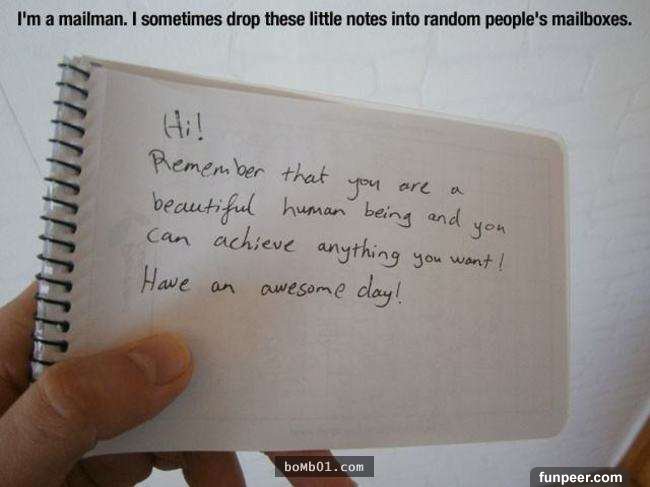 I'm a mailman. I sometimes drop these little notes into random people's mailboxes.
Hi!
Remember that you are a
beautiful human being and you
can achieve anything you want!
Have an awesome day!
boMb01.com
funpeer.com